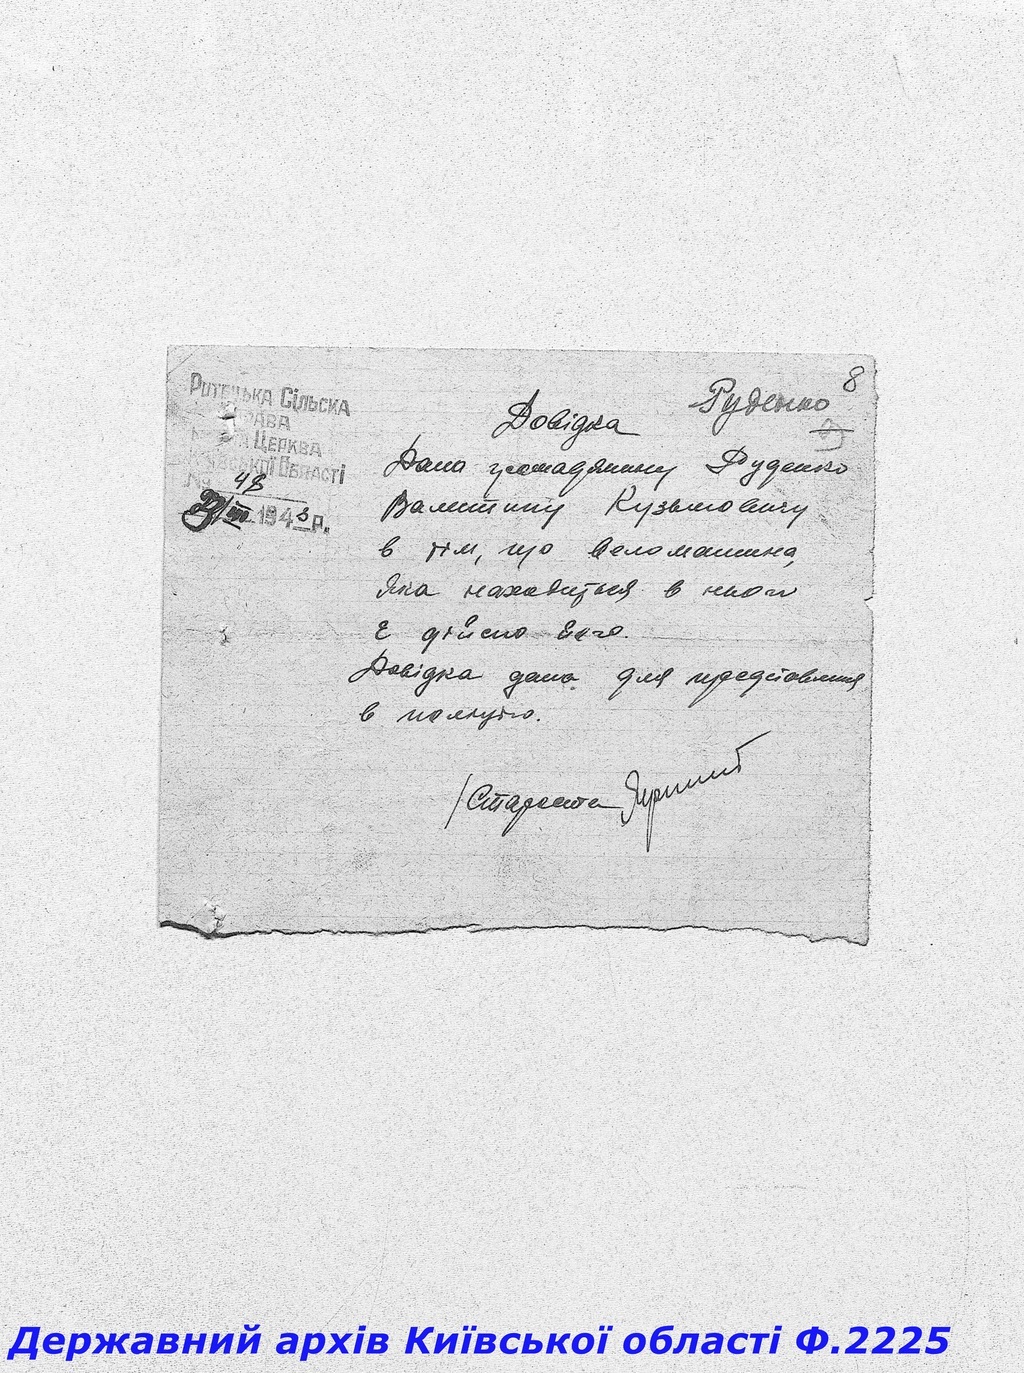 8
Руденко
Сільска
Церква
Області
№ 48
1943 р.
Довідка
Дана громадянину Руденко
Валентину Кузьмовичу
в тім, що веломашина,
яка находиться в нього
є дійсно його.
Довідка дана для представлення
в
/Староста
Державний архів Київської області Ф.2225